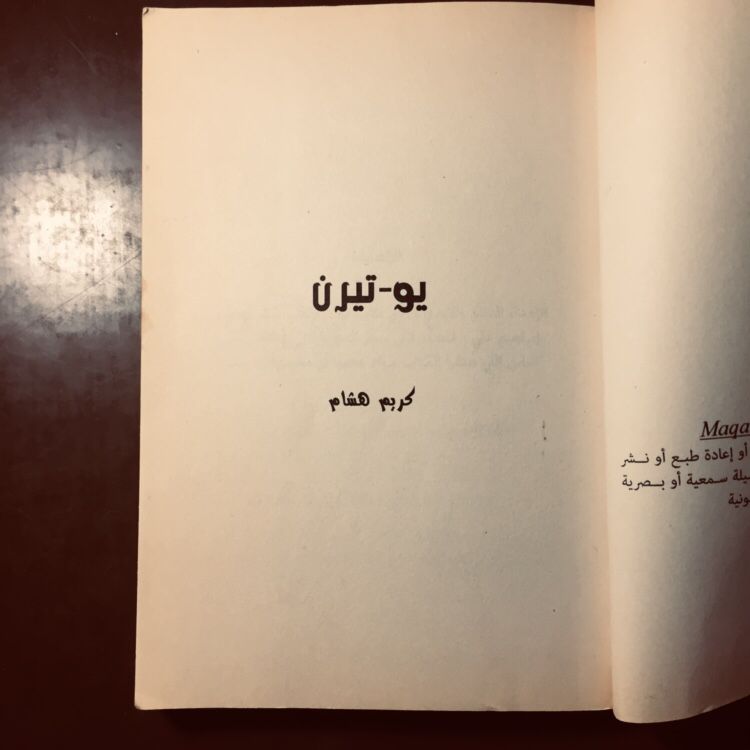 يو-تيرن
كريم هشام
Maqa
أو إعادة طبع أو نشر
يلة سمعية أو بصرية
ونية